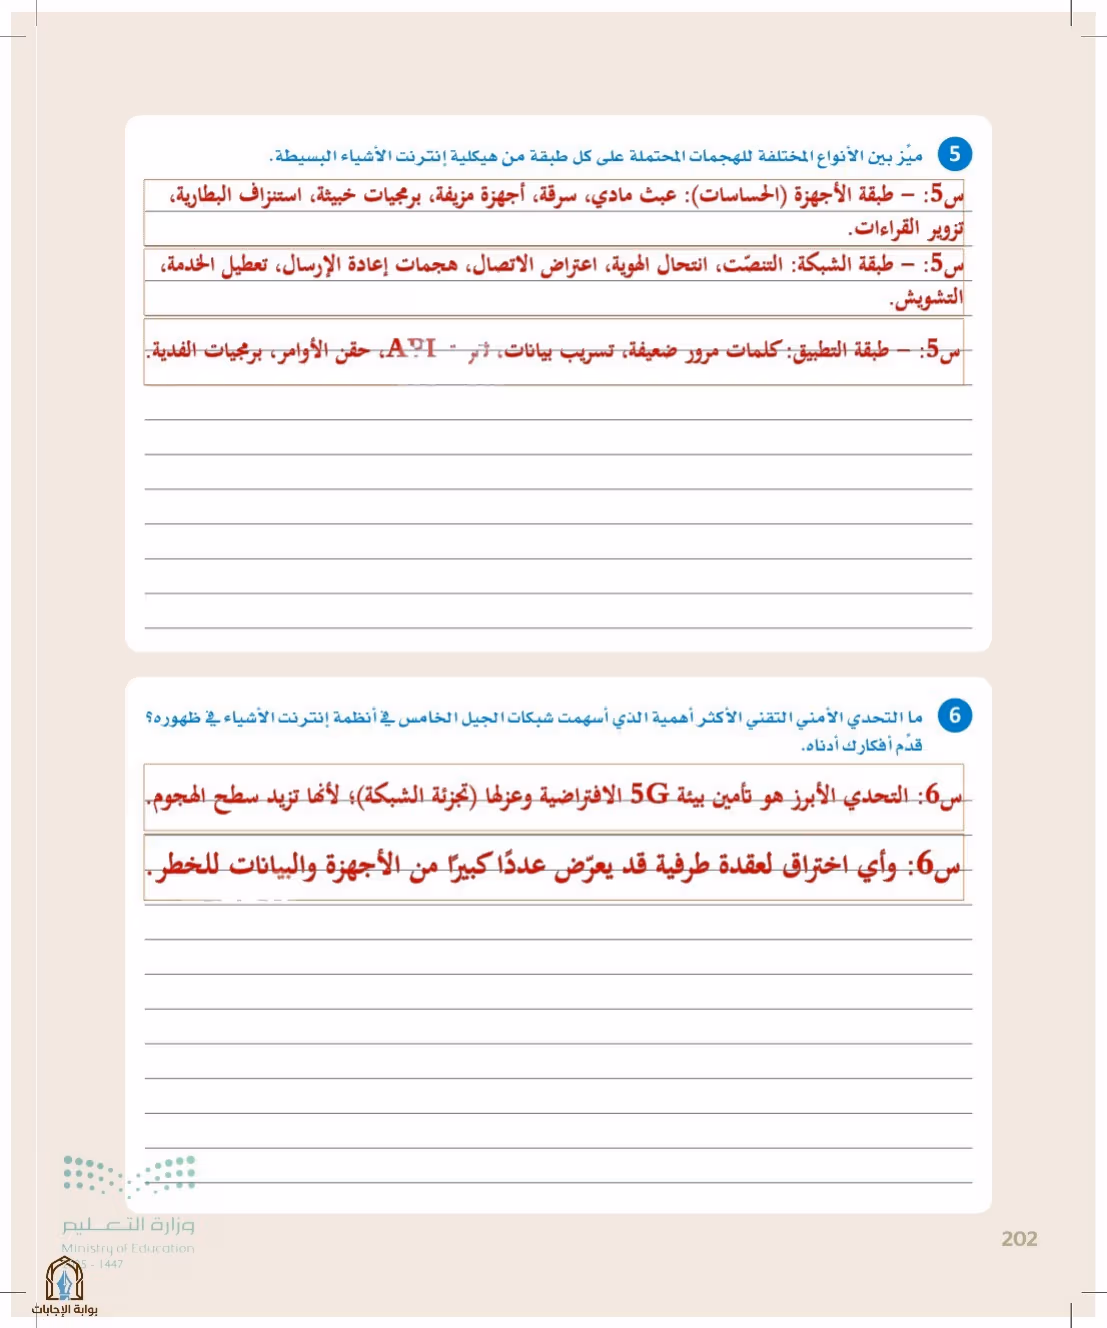 5 ميّز بين الأنواع المختلفة للهجمات المحتملة على كل طبقة من هيكلية إنترنت الأشياء البسيطة.
س5: – طبقة الأجهزة (الحساسات): عبث مادي، سرقة، أجهزة مزيفة، برمجيات خبيثة، استنزاف البطارية،
تزوير القراءات.
س5: – طبقة الشبكة: التنصّت، انتحال الهوية، اعتراض الاتصال، هجمات إعادة الإرسال، تعطيل الخدمة،
التشويش.
س5: – طبقة التطبيق: كلمات مرور ضعيفة، تسريب بيانات، API، حقن الأوامر، برمجيات الفدية.
6 ما التحدي الأمني التقني الأكثر أهمية الذي أسهمت شبكات الجيل الخامس في أنظمة إنترنت الأشياء في ظهوره؟
قدِّم أفكارك أدناه.
س6: التحدي الأبرز هو تأمين بيئة 5G الافتراضية وعزلها (تجزئة الشبكة)؛ لأنها تزيد سطح الهجوم.
س6: وأي اختراق لعقدة طرفية قد يعرّض عددًا كبيرًا من الأجهزة والبيانات للخطر.
وزارة التعليم
Ministry of Education
- 1447
202
بوابة الإجابات